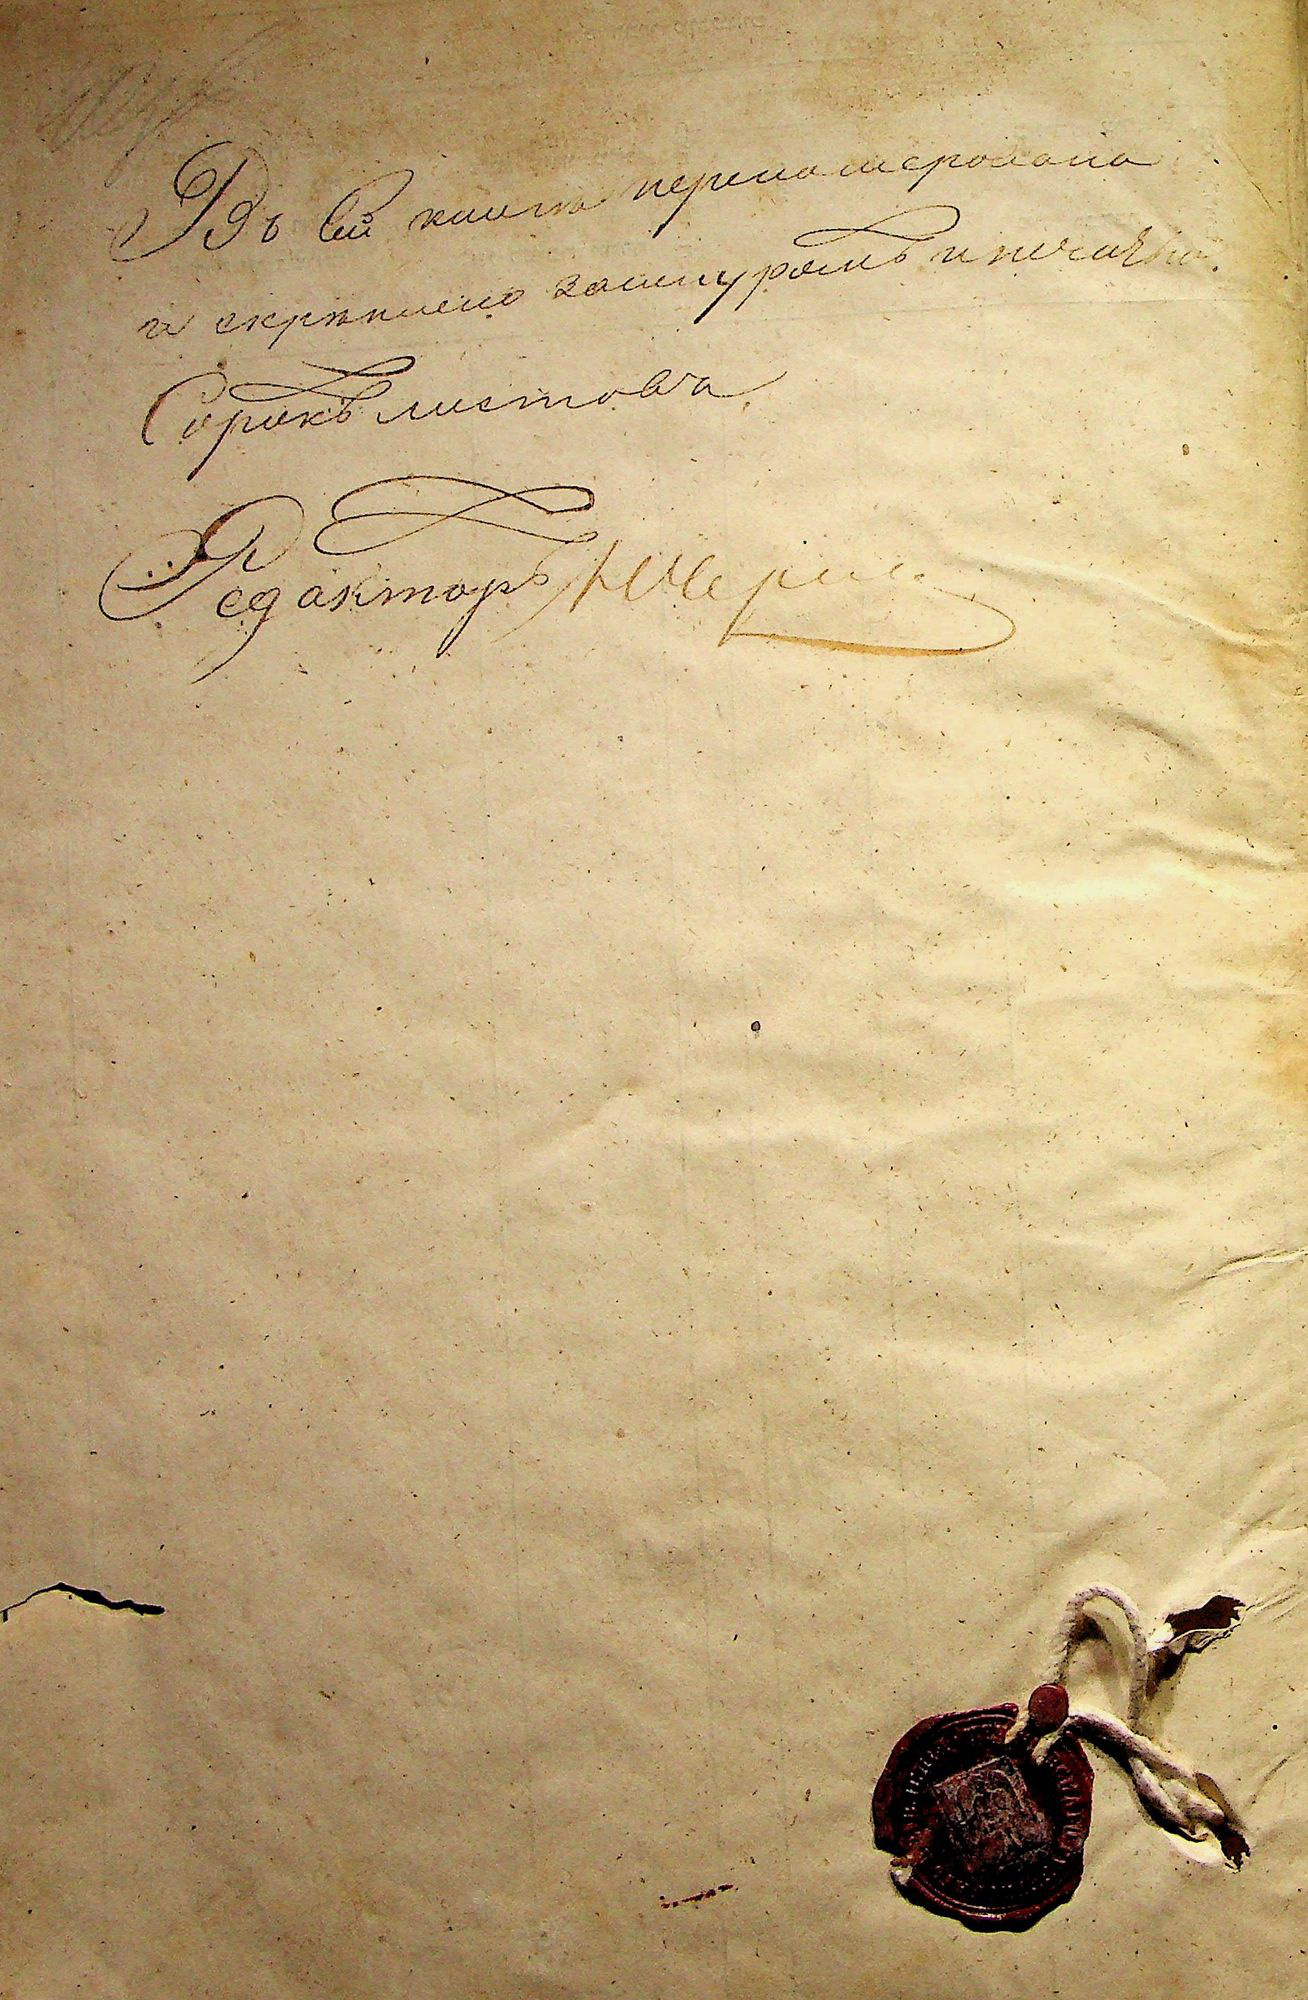 Въ сей книгѣ перенумерована
и скрѣплено зашнуромъ и печатью
Сорокъ листовъ
Редакторъ